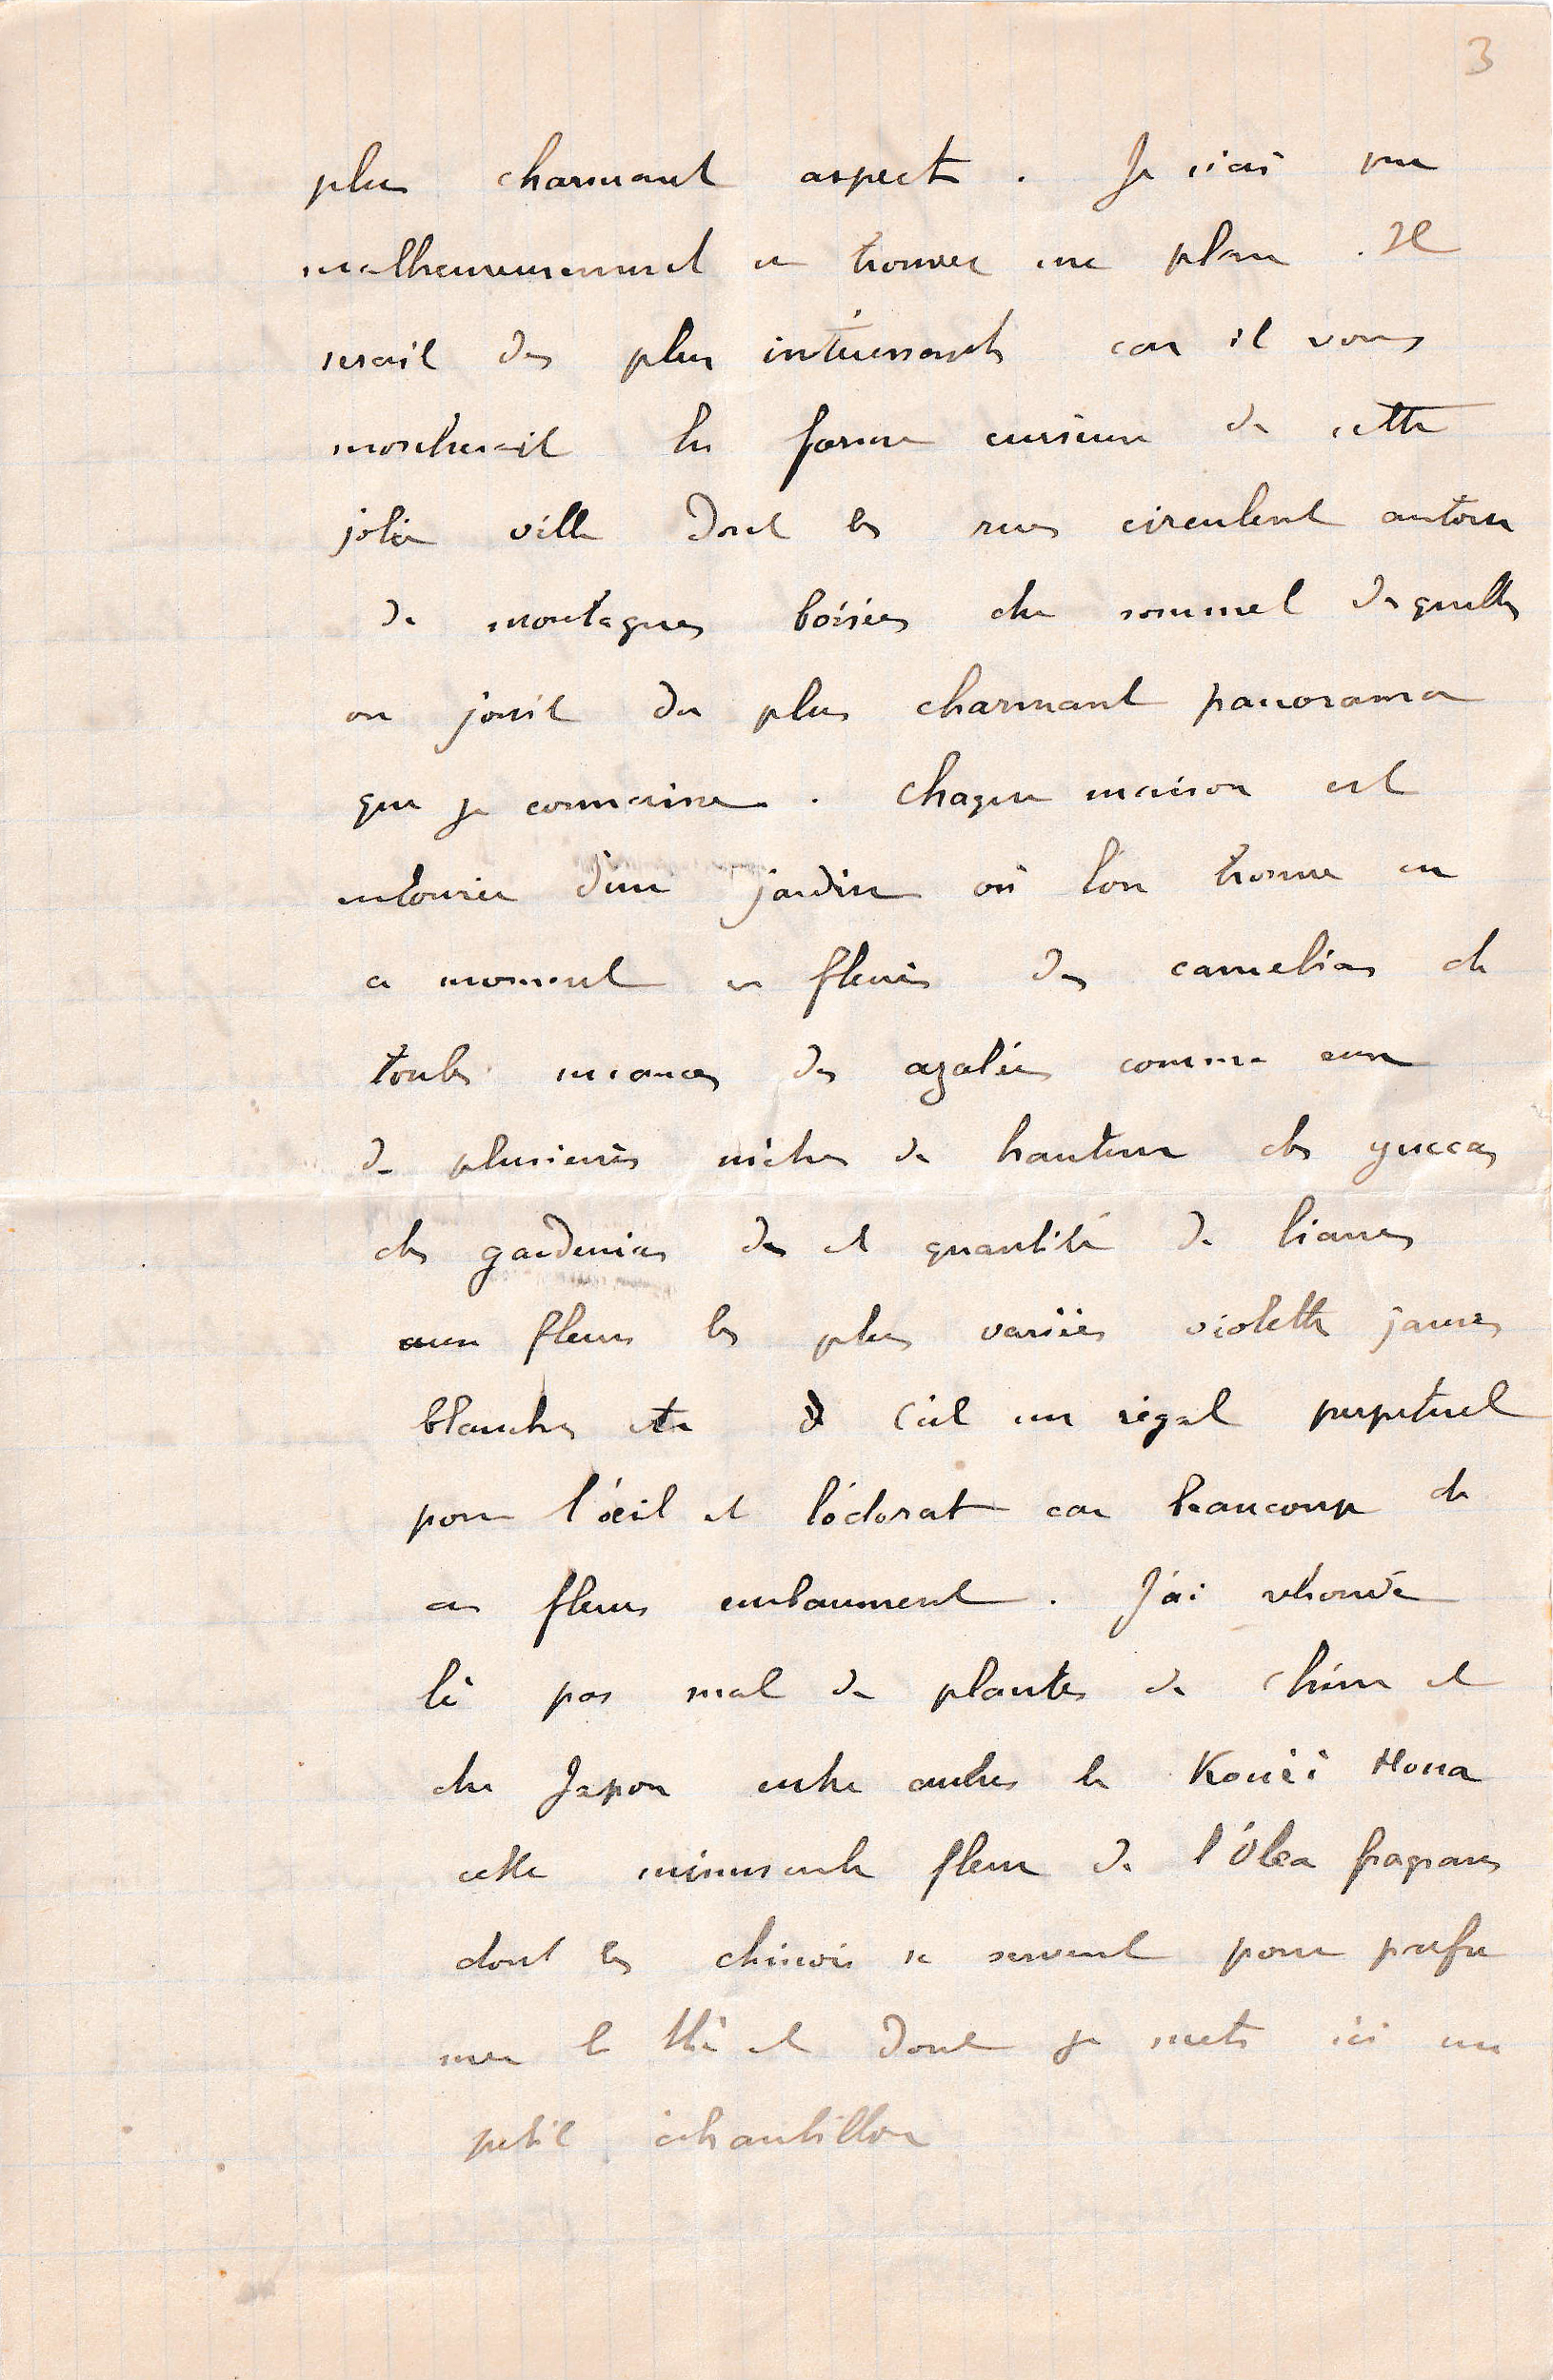 3
plus charmant aspect. Je n'ai pu
malheureusement en trouver un plan. Il
serait des plus intéressants car il vous
montrerait la forme curieuse de cette
jolie ville dont les rues circulent autour
de montagnes boisées du sommet desquelles
on jouit du plus charmant panorama
que je connaisse. Chaque maison est
entourée d'un jardin où l'on trouve en
ce moment en fleurs des camelias de
toutes nuances des azalées comme
de plusieurs mètres de hauteur des yuccas
des gardenias des et quantité de lianes
aux fleurs les plus variées violettes jaunes
blanches etc C'est un régal perpetuel
pour l'oeil et l'odorat car beaucoup de
ces fleurs embaument. J'ai retrouvé
là pas mal de plantes de Chine et
du Japon entre autres le Kouéi Houa
cette minuscule fleur de l'Olea fragrans
dont les chinois se servent pour parfu
mer le thé et dont je mets ici un
petit échantillon